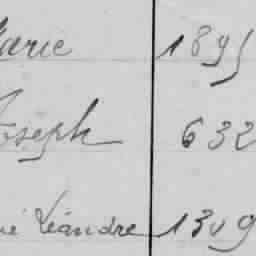 Marie 1895
Joseph 632
Léandre 1309